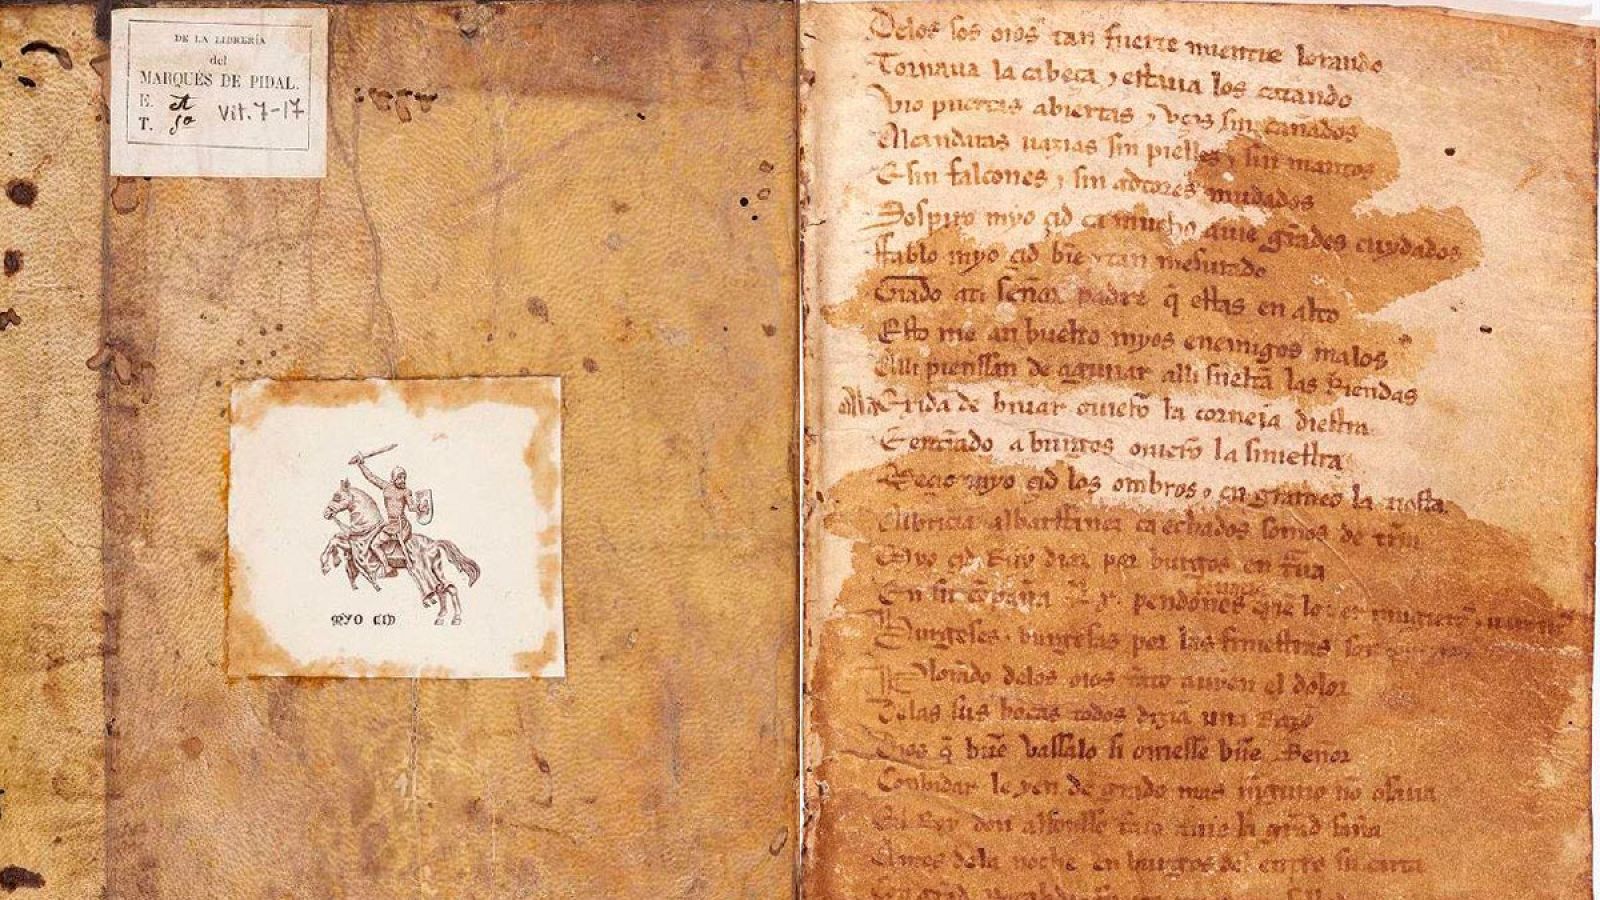 DE LA LIBRERÍA
del
MARQUÉS DE PIDAL.
E. et
T. 5a Vit. 7-17
MYO CID
Delos sos oios tan fuerte mientre lorando
Tornaua la cabeça y estaua los catando
Vio puertas abiertas y vços sin cañados
Alcandaras uazias sin pielles y sin mantos
E sin falcones y sin adtores mudados
Sospiro myo çid ca mucho auie grãdes cuydados
Ffablo myo çid biẽ y tan mesurado
Grado ati señor padre q̃ estas en alto
Esto me an buelto myos enemigos malos
Alli pienssan de aguiiar alli sueltã las Riendas
Ala exida de biuar ouierõ la corneia diestra
E entrãdo a burgos ouierõ la siniestra
Meçio myo çid los ombros y en grameo la tiesta
Albricia albarffanez ca echados somos de trrã
Myo çid Ruy diaz por burgos en trãua
En su cõpaña Lx pendones
Burgeses y burgesas por las finiestras son
Plorãdo delos oios tãto auyen el dolor
Delas sus bocas todos dizia una Razõ
Dios q̃ buẽ vassalo si ouiesse buẽ Señor
Conbidar le yen de grado mas nĩguno nõ osaua
El Rey don alfonsso tãto auie la grãd saña
Antes dela noche en burgos del entro su carta